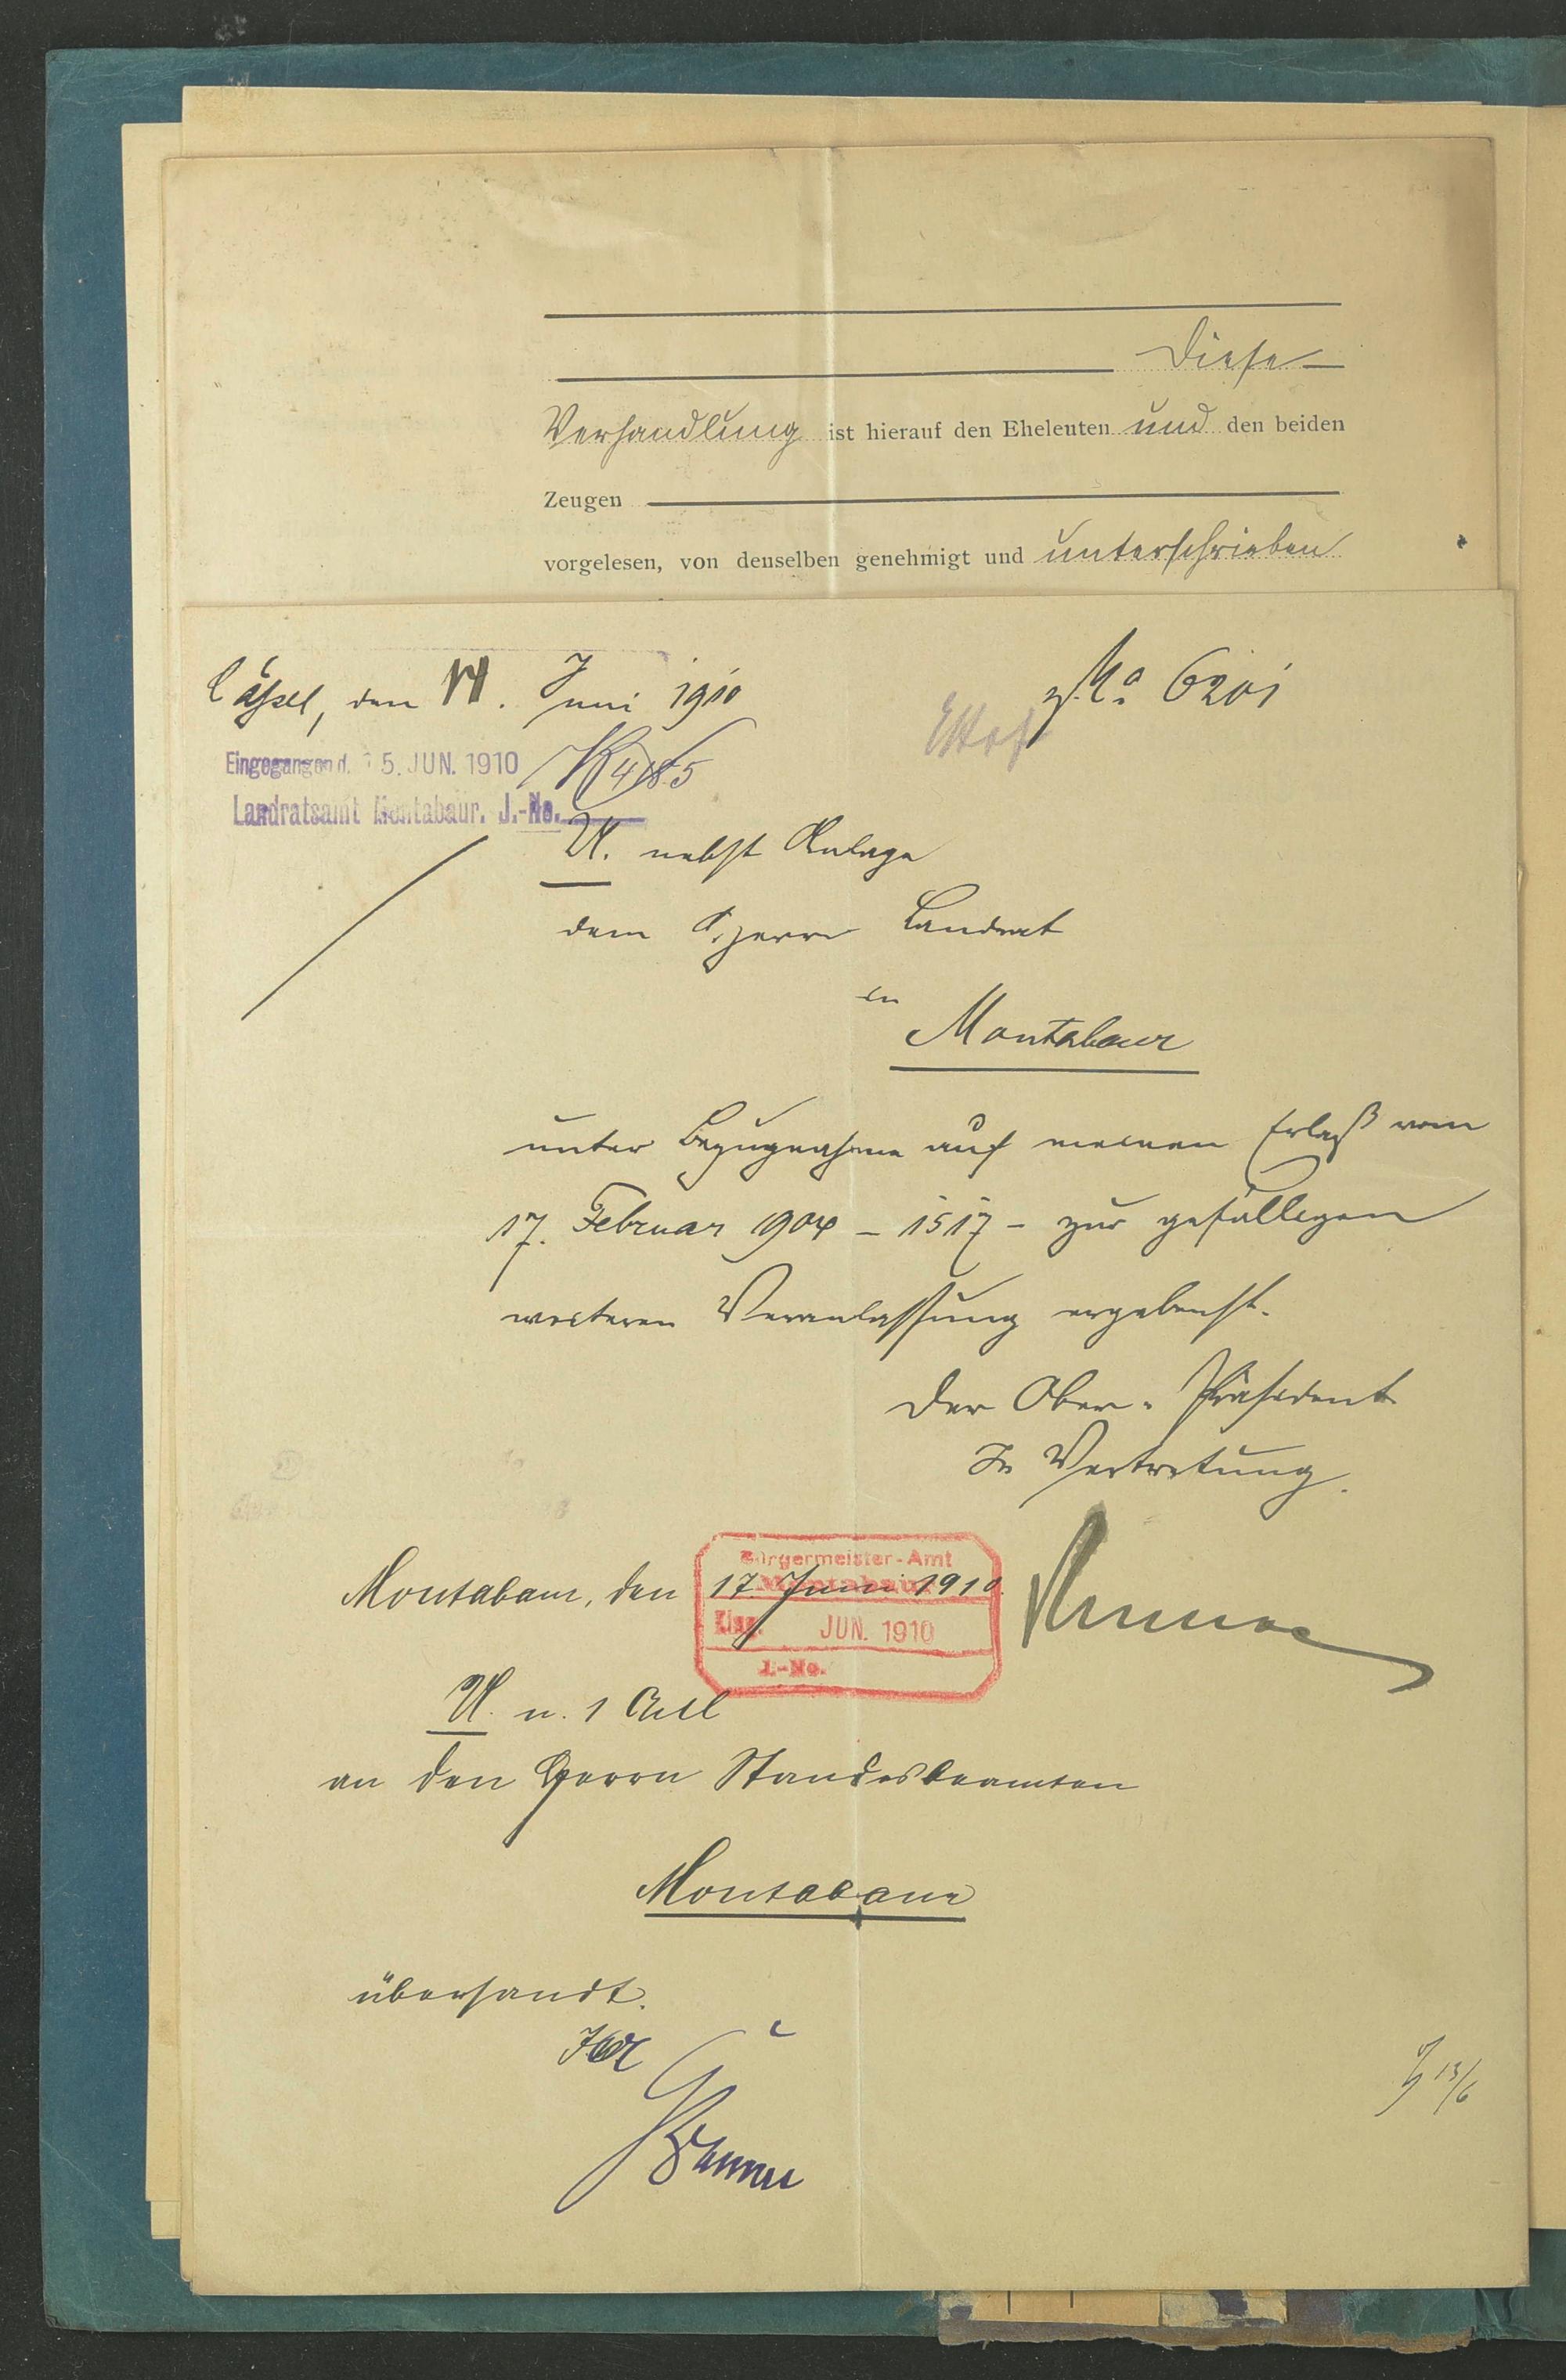 Diese
Verhandlung ist hierauf den Eheleuten und den beiden
Zeugen
vorgelesen, von denselben genehmigt und unterschrieben
Cassel, den 11. Juni 1910
No 6201
Eingegangen d. 15. JUN. 1910
K 4185
Landratsamt Montabaur. J.-No.
U. nebst Anlage
dem Herrn Landrat
in
Montabaur
unter Bezugnahme auf meinen Erlaß vom
17. Februar 1904 - 1517 - zur gefälligen
weiteren Veranlassung ergebenst.
Der Ober-Präsident
In Vertretung.
Bürgermeister-Amt
Montabaur
Montabaur, den 17. Juni 1910.
Eing. JUN. 1910
J.-No.
U. n. 1 Anl
an den Herrn Standesbeamten
Montabaur
übersandt.
13/6